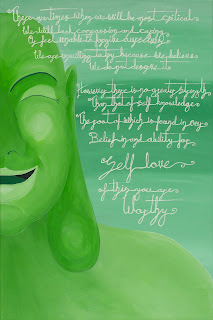 There are times when we will be most critical
We will lack compassion and caring
Or feel unable to forgive ourselves
We are unwilling to try because we believe
We do not deserve it
However there is no greater strength
Than that of self knowledge
The root of which is found in our
Belief in and ability for
Self love
of this you are
Worthy